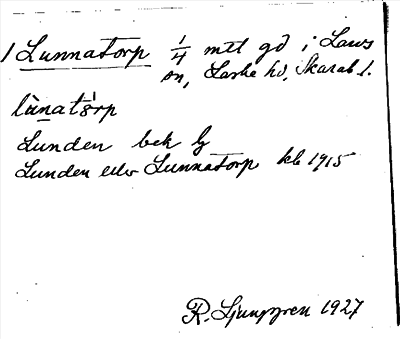 1 Lunnatorp 1/4 mtl gd i Lavs
sn, Laske hd, Skarab. l.
lùnatårp
Lunden bek lj
Lunden eller Lunnatorp kb 1915
R. Ljunggren 1927